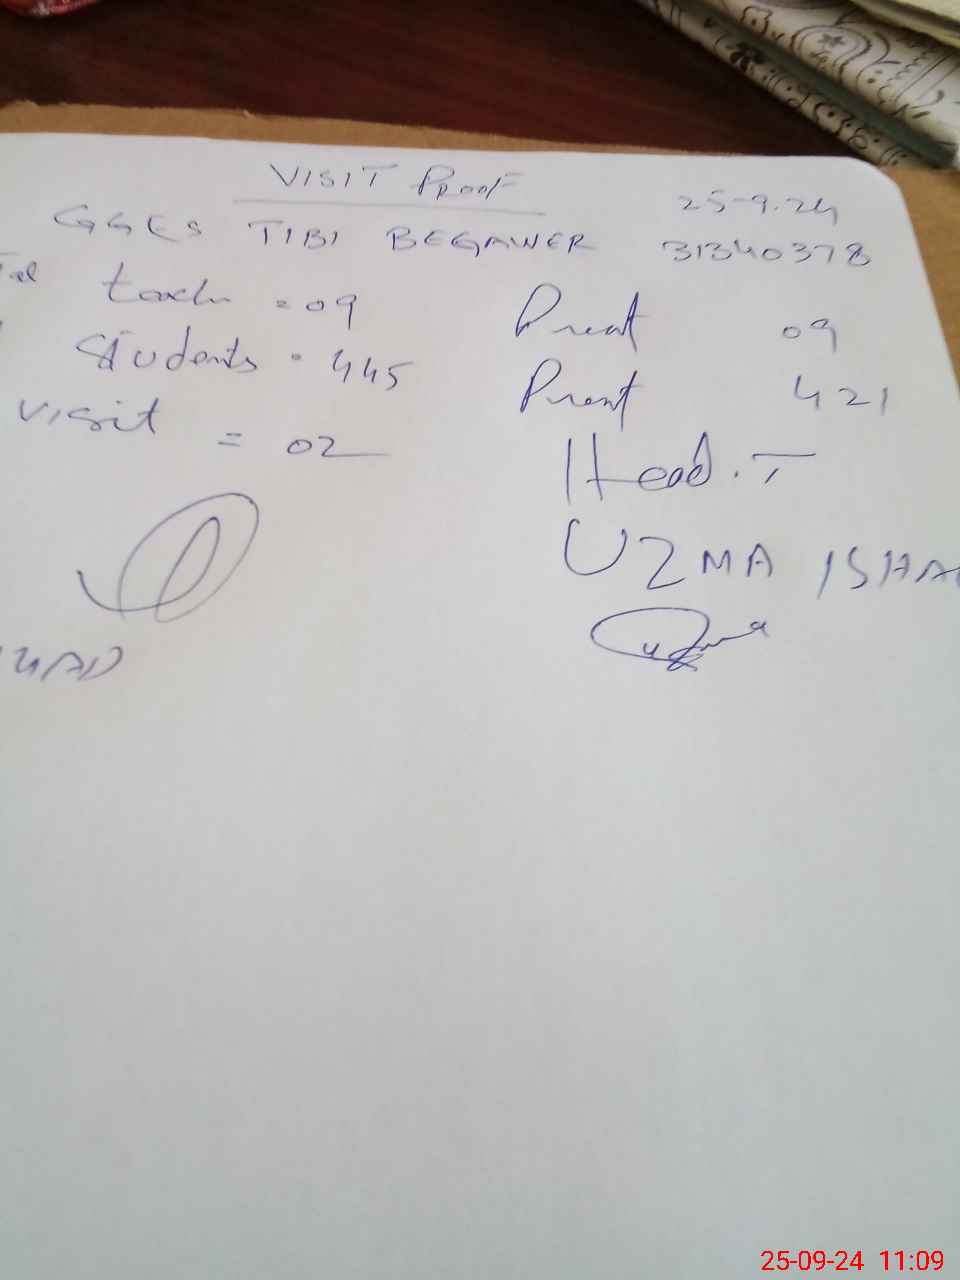 VISIT PROOF
25-9.24
GGES TIBI BEGAWER 31340378
teach = 09 Prent 09
Students = 445 Prent 421
visit = 02
Head. T
UZMA ISHA
Uzma
25-09-24 11:09